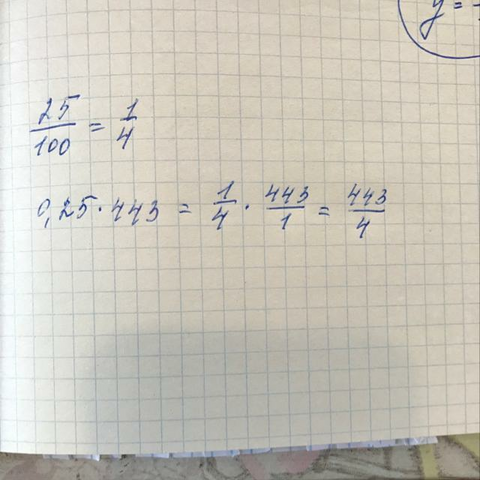 y =
25/100 = 1/4
0,25 · 443 = 1/4 · 443/1 = 443/4